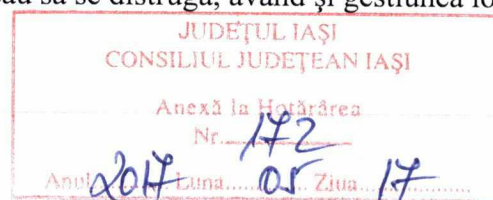 sau să se distrugă, având şi gestiunea lo
JUDEŢUL IAŞI
CONSILIUL JUDEŢEAN IAŞI
Anexă la Hotărârea
Nr. 172
Anul 2017 Luna 05 Ziua 17